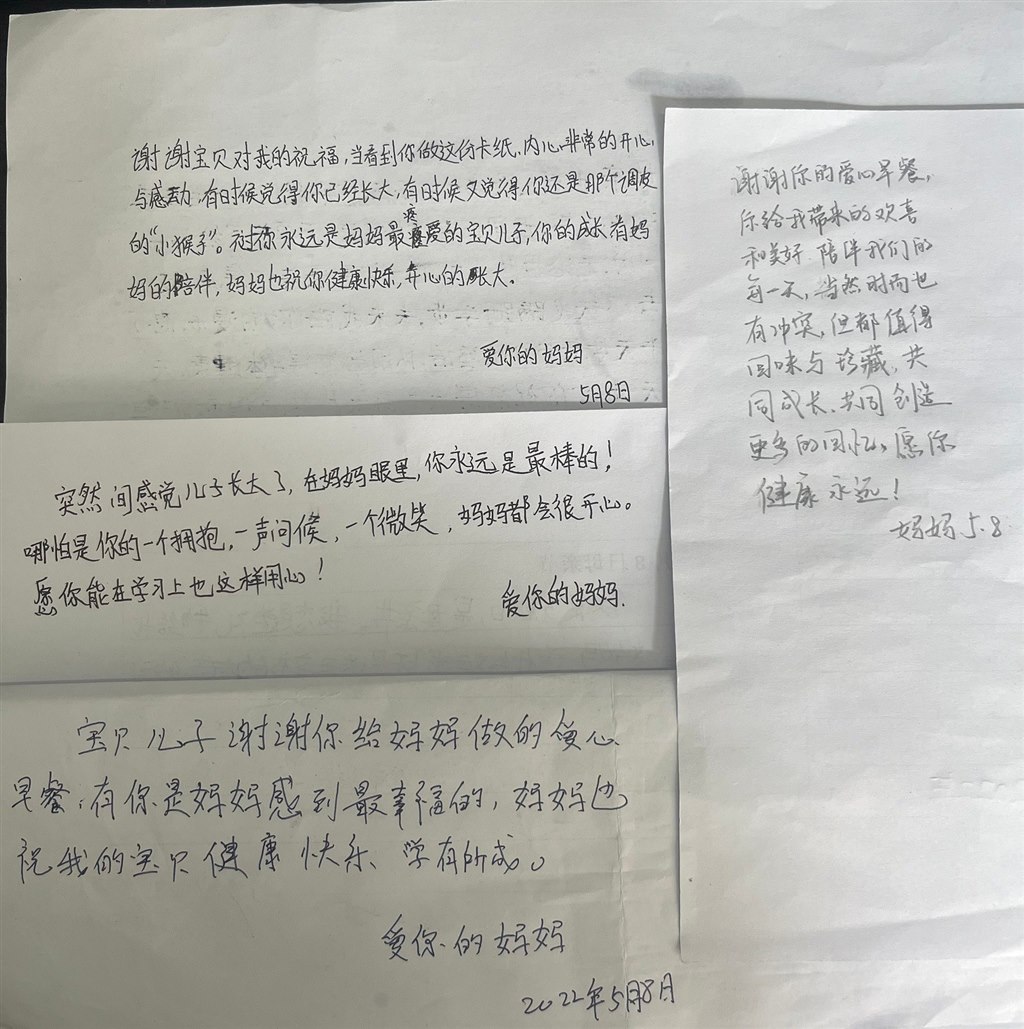 谢谢宝贝对我的祝福,当看到你做这份卡纸,内心非常的开心
与感动,有时候觉得你已经长大,有时候又觉得你还是那个调皮
的“小猴子”。对你永远是妈妈最疼爱的宝贝儿子,你的成长有妈
妈的陪伴,妈妈也祝你健康快乐,开心的长大。
爱你的妈妈
5月8日
突然间感觉儿子长大了,在妈妈眼里,你永远是最棒的!
哪怕是你的一个拥抱,一声问候,一个微笑,妈妈都会很开心。
愿你能在学习上也这样用心!
爱你的妈妈.
宝贝儿子谢谢你给妈妈做的爱心
早餐,有你是妈妈感到最幸福的,妈妈也
祝我的宝贝健康快乐、学有所成。
爱你的妈妈
2022年5月8日
谢谢你的爱心早餐,
你给我带来的欢喜
和美好 陪伴我们的
每一天,当然时而也
有冲突,但都值得
回味与珍藏,共
同成长、共同创造
更多的回忆,愿你
健康永远!
妈妈 5.8